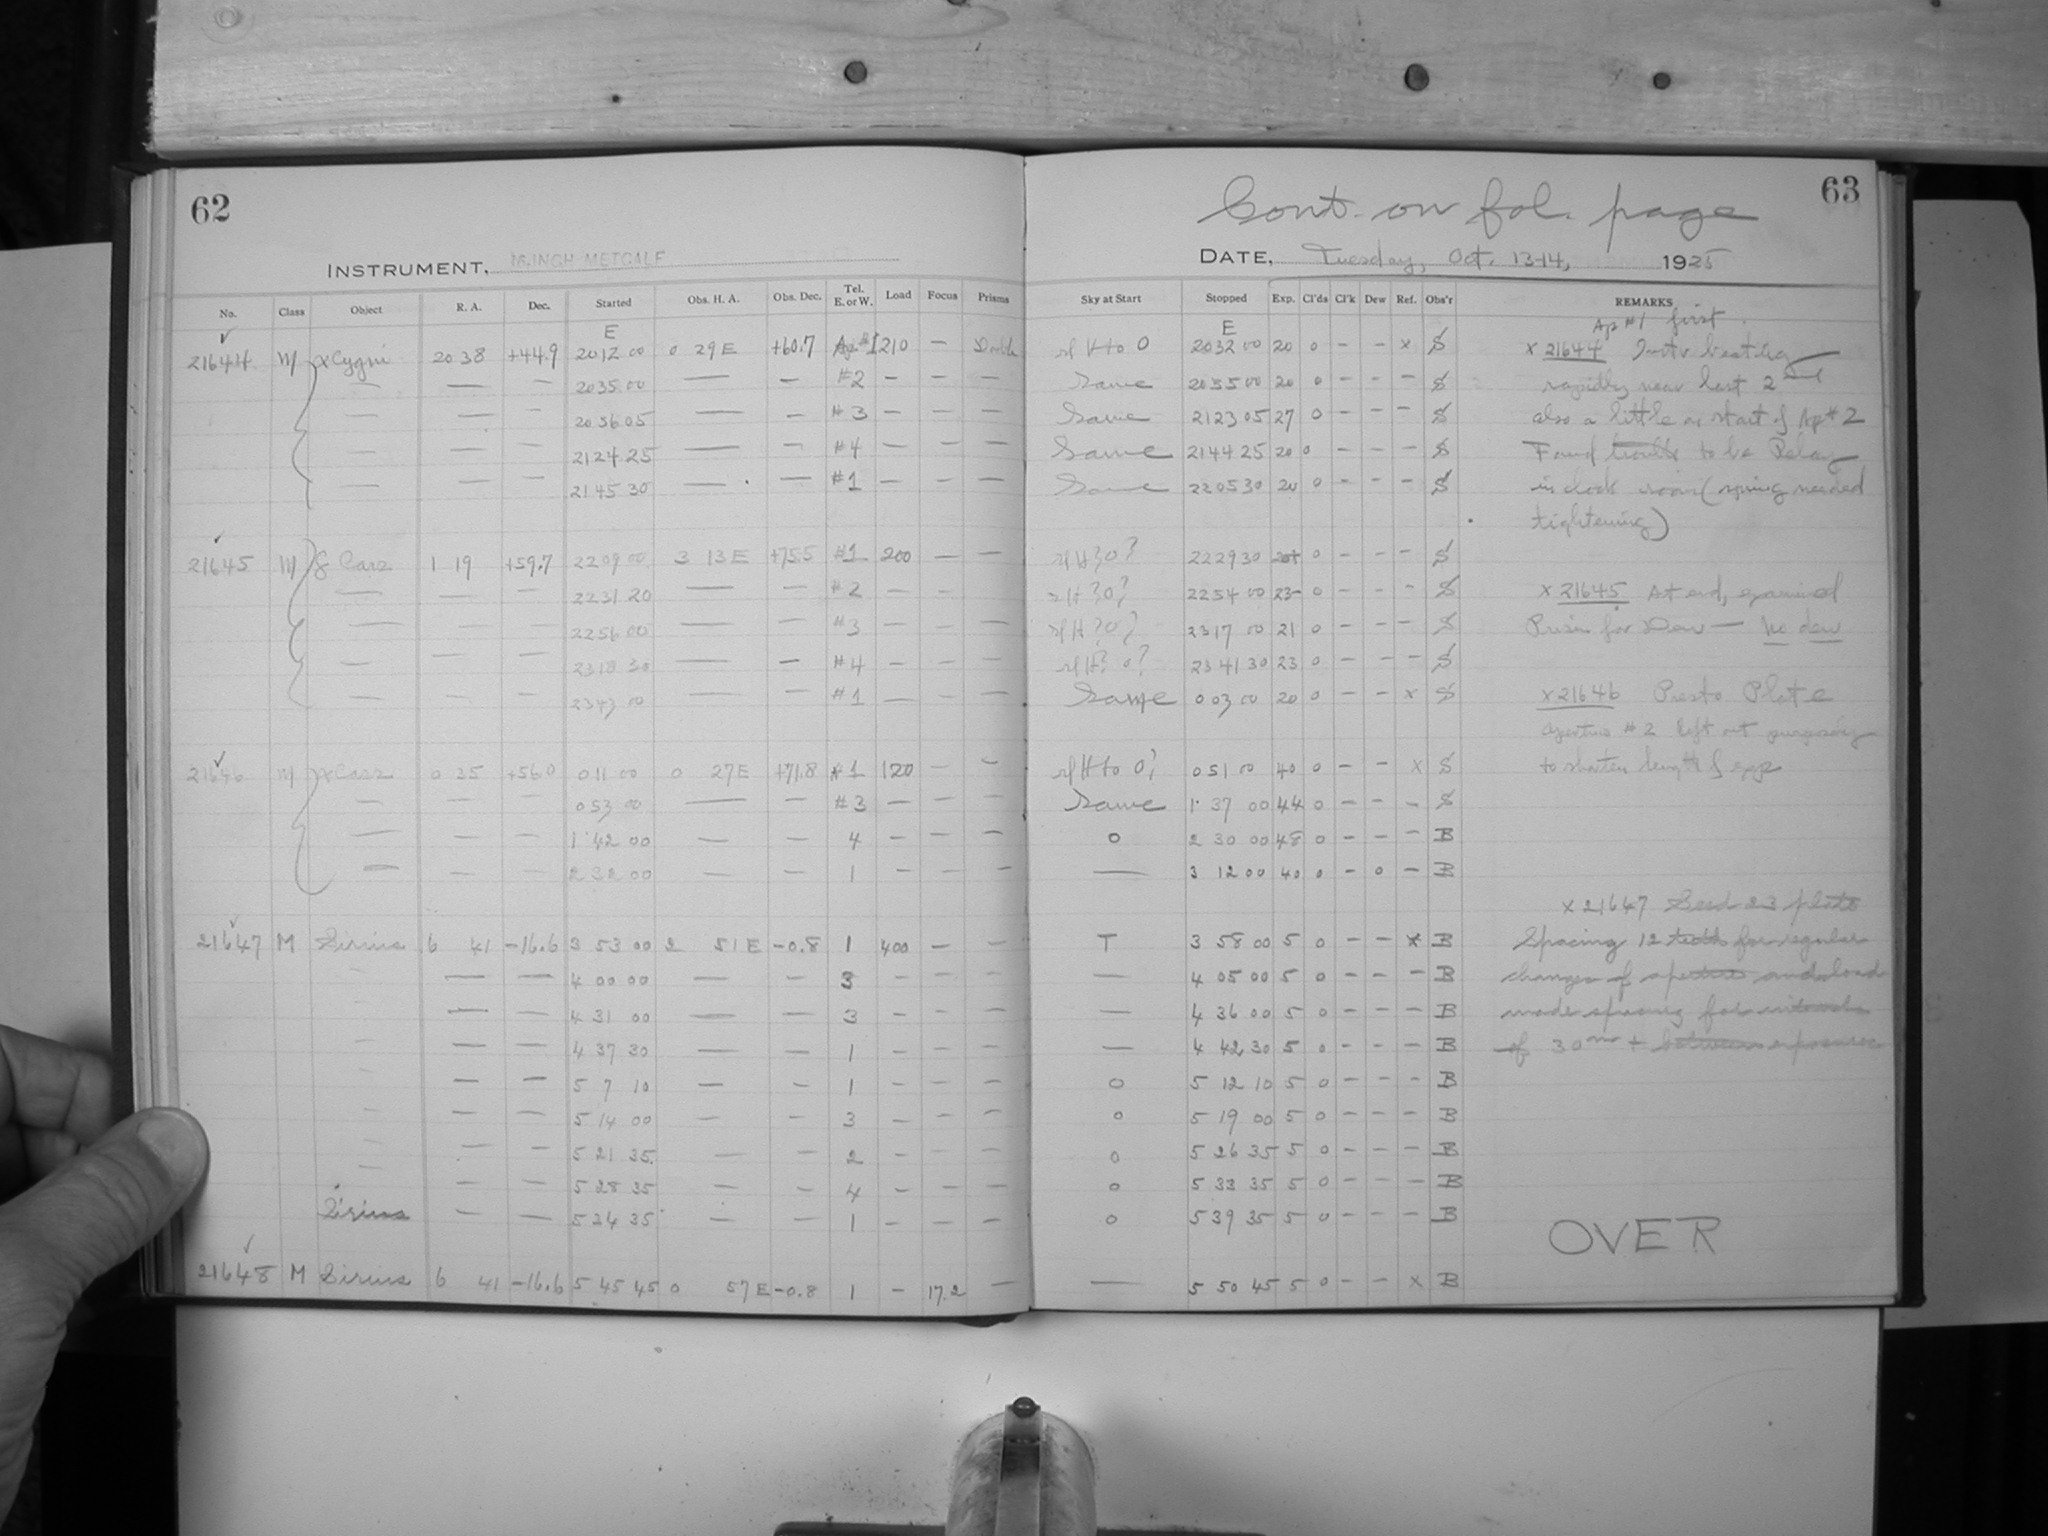 62
INSTRUMENT, 16-INCH METCALF
No. Class Object R. A. Dec. Started Obs. H. A. Obs. Dec. Tel. E. or W. Load Focus Prisms
E
21644 M α Cygni 20 38 +44.9 20 12 00 0 29 E +60.7 Ap #1 210 — Double
— — — 20 35 00 — — #2 — — —
— — — 20 56 05 — — #3 — — —
— — — 21 24 25 — — #4 — — —
— — — 21 45 30 — — #1 — — —
21645 M δ Cass 1 19 +59.7 22 09 00 3 13 E +75.5 #1 200 — —
— — — 22 31 20 — — #2 — — —
— — — 22 56 00 — — #3 — — —
— — — 23 18 30 — — #4 — — —
— — — 23 43 00 — — #1 — — —
21646 M α Cass 0 35 +56.0 0 11 00 0 27 E +71.8 #1 120 — —
— — — 0 53 00 — — #3 — — —
— — — 1 42 00 — — 4 — — —
— — — 2 32 00 — — 1 — — —
21647 M Sirius 6 41 -16.6 3 53 00 2 51 E -0.8 1 400 — —
— — — 4 00 00 — — 3 — — —
— — — 4 31 00 — — 3 — — —
— — — 4 37 30 — — 1 — — —
— — — 5 7 10 — — 1 — — —
— — — 5 14 00 — — 3 — — —
— — — 5 21 35 — — 2 — — —
— — — 5 28 35 — — 4 — — —
Sirius — — 5 24 35 — — 1 — — —
21648 M Sirius 6 41 -16.6 5 45 45 0 57 E -0.8 1 — 17.2 —
63
Cont. on fol. page
DATE, Tuesday, Oct. 13-14, 1925
Sky at Start Stopped Exp. Cl'ds Cl'k Dew Ref. Obs'r REMARKS
E
H to 0 20 32 00 20 0 — — x S
Same 20 55 00 20 0 — — — S
Same 21 23 05 27 0 — — — S
Same 21 44 25 20 0 — — — S
Same 22 05 30 20 0 — — — S
H ? 0 ? 22 29 30 20+ 0 — — — S
H ? 0 ? 22 54 00 23- 0 — — — S
H ? 0 ? 23 17 00 21 0 — — — S
H ? 0 ? 23 41 30 23 0 — — — S
Same 0 03 00 20 0 — — x S
H to 0? 0 51 00 40 0 — — x S
Same 1 37 00 44 0 — — — S
0 2 30 00 48 0 — — — B
— 3 12 00 40 0 — 0 — B
T 3 58 00 5 0 — — x B
— 4 05 00 5 0 — — — B
— 4 36 00 5 0 — — — B
— 4 42 30 5 0 — — — B
0 5 12 10 5 0 — — — B
0 5 19 00 5 0 — — — B
0 5 26 35 5 0 — — — B
0 5 33 35 5 0 — — — B
0 5 39 35 5 0 — — — B
— 5 50 45 5 0 — — x B
Ap #1 first.
x 21644 beating
rapidly near last 2
also a little at start of Ap #2
Found trouble to be Relay
in clock room (spring needed
tightening)
x 21645 At end, examined
Prism for Dew — No dew
x 21646 Presto Plate
Aperture #2 left out purposely
to shorten length of exp
x 21647 Seed 23 plate
Spacing 12 teeth for regular
changes of aperture and load
made spacing for intervals
of 30m + between exposures
OVER